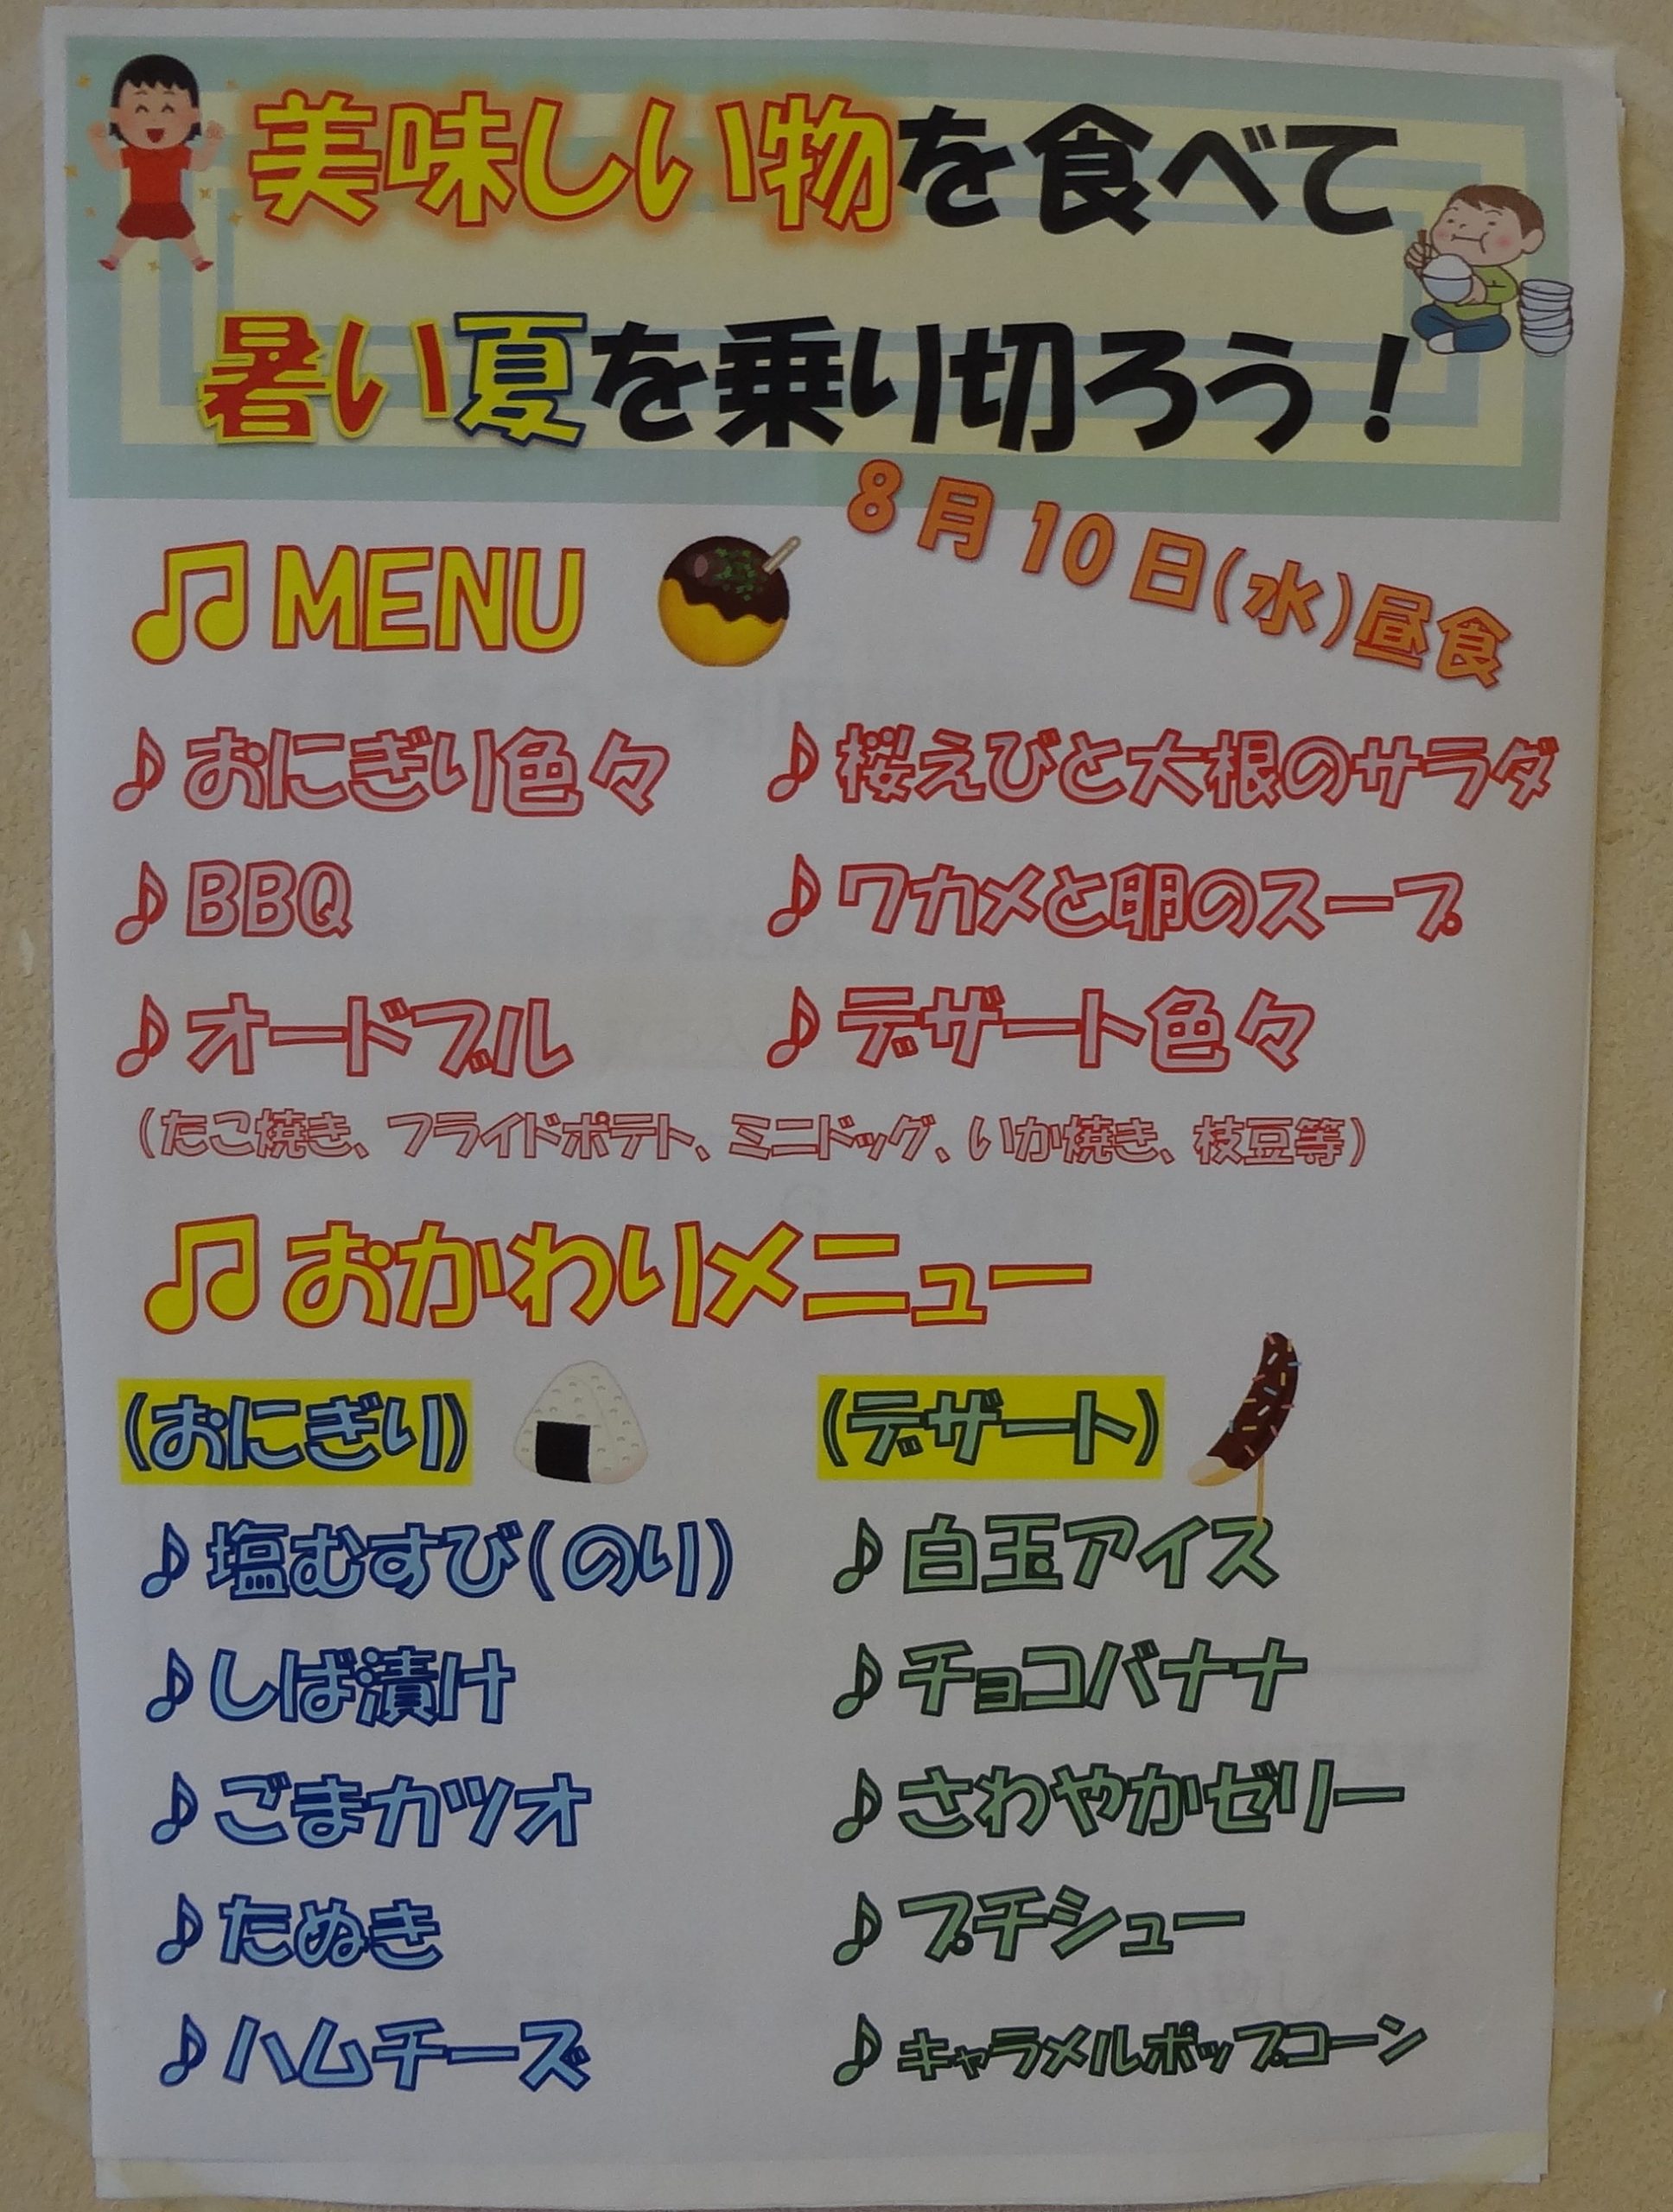 美味しい物を食べて
暑い夏を乗り切ろう！
8月10日(水)昼食
♫MENU
♪おにぎり色々
♪桜えびと大根のサラダ
♪BBQ
♪ワカメと卵のスープ
♪オードブル
♪デザート色々
(たこ焼き、フライドポテト、ミニドッグ、いか焼き、枝豆等)
♫おかわりメニュー
(おにぎり)
♪塩むすび(のり)
♪しば漬け
♪ごまカツオ
♪たぬき
♪ハムチーズ
(デザート)
♪白玉アイス
♪チョコバナナ
♪さわやかゼリー
♪プチシュー
♪キャラメルポップコーン